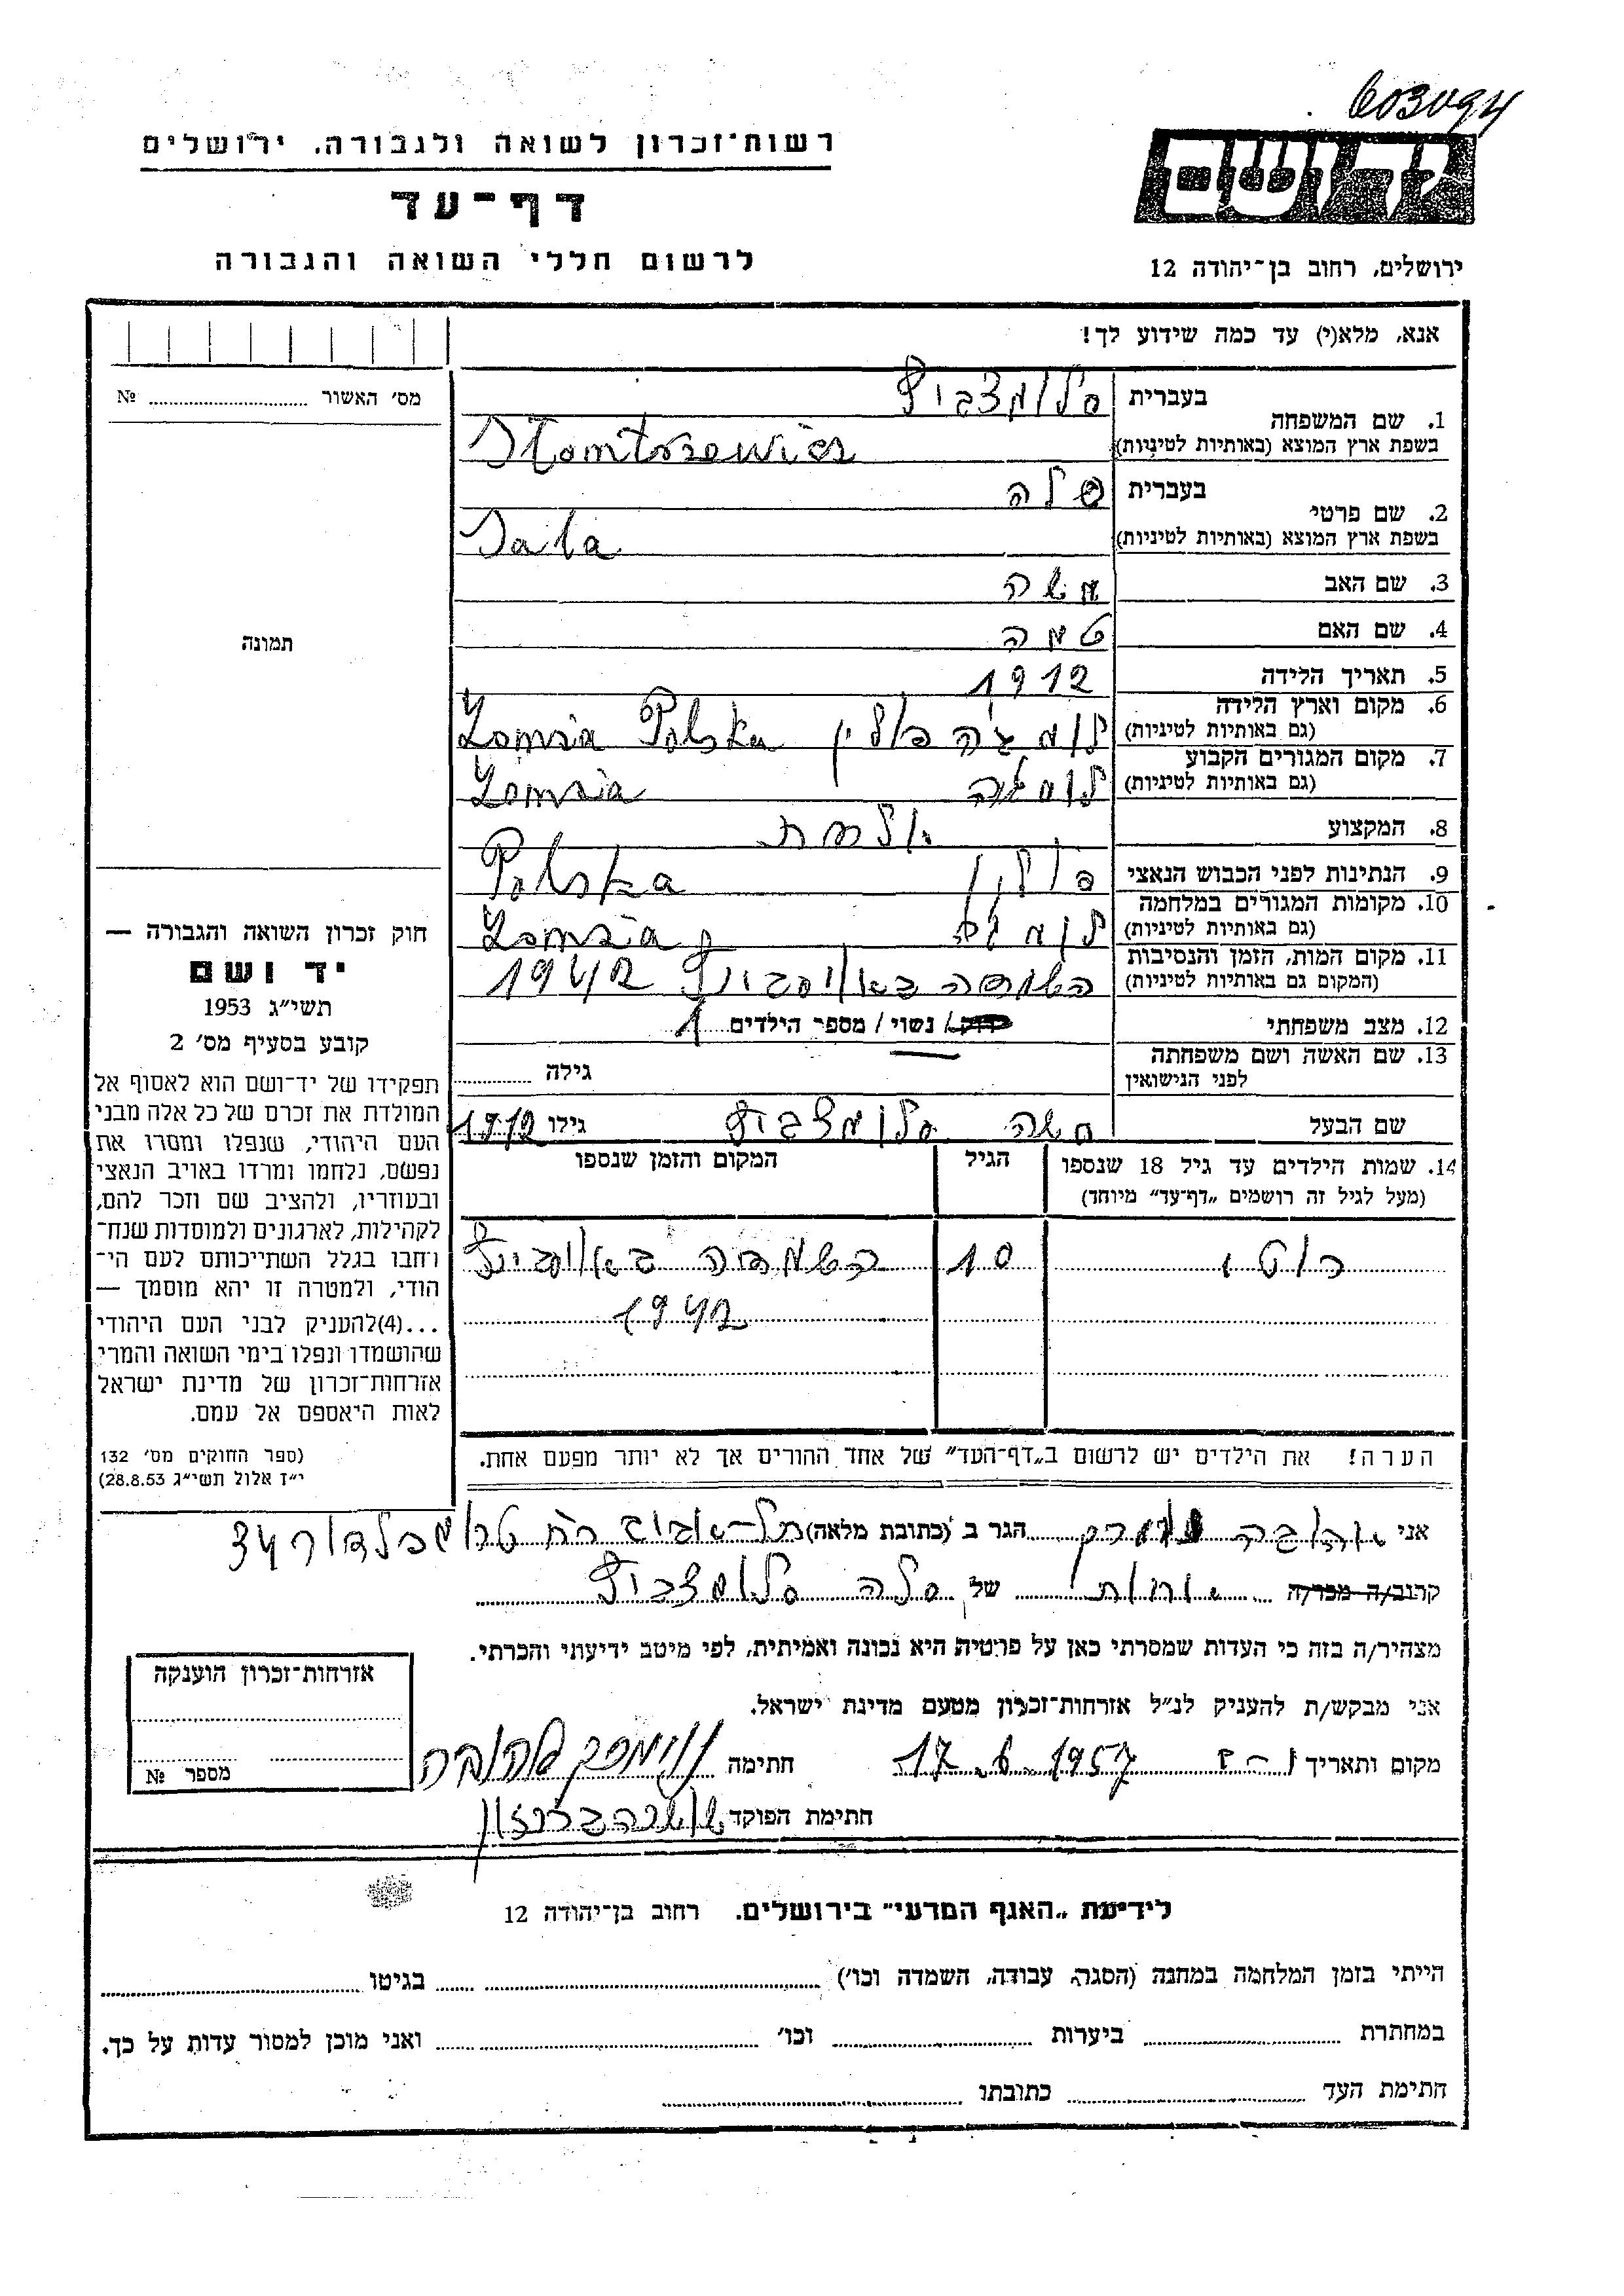 603094
יד ושם
רשות־זכרון לשואה ולגבורה, ירושלים
דף־עד
לרשום חללי השואה והגבורה
ירושלים, רחוב בן־יהודה 12
אנא, מלא(י) עד כמה שידוע לך!
מס' האשור № 
1. שם המשפחה
בעברית
בשפת ארץ המוצא (באותיות לטיניות)
2. שם פרטי
בעברית סלה
בשפת ארץ המוצא (באותיות לטיניות) Sala
3. שם האב משה
4. שם האם
5. תאריך הלידה 1912
6. מקום וארץ הלידה
(גם באותיות לטיניות) לומז'ה פולין Łomża Polska
7. מקום המגורים הקבוע
(גם באותיות לטיניות) לומז'ה Łomża
8. המקצוע
9. הנתינות לפני הכבוש הנאצי פולין Polska
10. מקומות המגורים במלחמה
(גם באותיות לטיניות) Łomża
11. מקום המות, הזמן והנסיבות
(המקום גם באותיות לטיניות) הושמדה באושביץ 1942
12. מצב משפחתי נשוי / מספר הילדים 1
13. שם האשה ושם משפחתה
לפני הנישואין
גילה
שם הבעל משה גילו 1912
14. שמות הילדים עד גיל 18 שנספו
(מעל לגיל זה רושמים „דף־עד" מיוחד)
הגיל
המקום והזמן שנספו
רוטי 10 הושמדה באושביץ
1942
הערה! את הילדים יש לרשום ב„דף־העד" של אחד ההורים אך לא יותר מפעם אחת.
תמונה
חוק זכרון השואה והגבורה —
יד ושם
תשי"ג 1953
קובע בסעיף מס' 2
תפקידו של יד־ושם הוא לאסוף אל
המולדת את זכרם של כל אלה מבני
העם היהודי, שנפלו ומסרו את
נפשם, נלחמו ומרדו באויב הנאצי
ובעוזריו, ולהציב שם וזכר להם,
לקהילות, לארגונים ולמוסדות שנח־
רחבו בגלל השתייכותם לעם הי־
הודי, ולמטרה זו יהא מוסמך —
...(4)להעניק לבני העם היהודי
שהושמדו ונפלו בימי השואה והמרי
אזרחות־זכרון של מדינת ישראל
לאות היאספם אל עמם.
(ספר החוקים מס' 132
י"ז אלול תשי"ג 28.8.53)
אני אהובה הגר ב (כתובת מלאה) תל-אביב רח טרומפלדור 34
קרוב/ה מכר/ה אחות של סלה
מצהיר/ה בזה כי העדות שמסרתי כאן על פרטיה היא נכונה ואמיתית, לפי מיטב ידיעתי והכרתי.
אני מבקש/ת להעניק לנ"ל אזרחות־זכרון מטעם מדינת ישראל.
מקום ותאריך 17.6.1957 חתימה אהובה
חתימת הפוקד
אזרחות־זכרון הוענקה
מספר №
לידיעת „האגף המדעי" בירושלים. רחוב בן־יהודה 12
הייתי בזמן המלחמה במחנה (הסגר, עבודה, השמדה וכו') בגיטו
במחתרת ביערות וכו' ואני מוכן למסור עדות על כך.
חתימת העד כתובתו